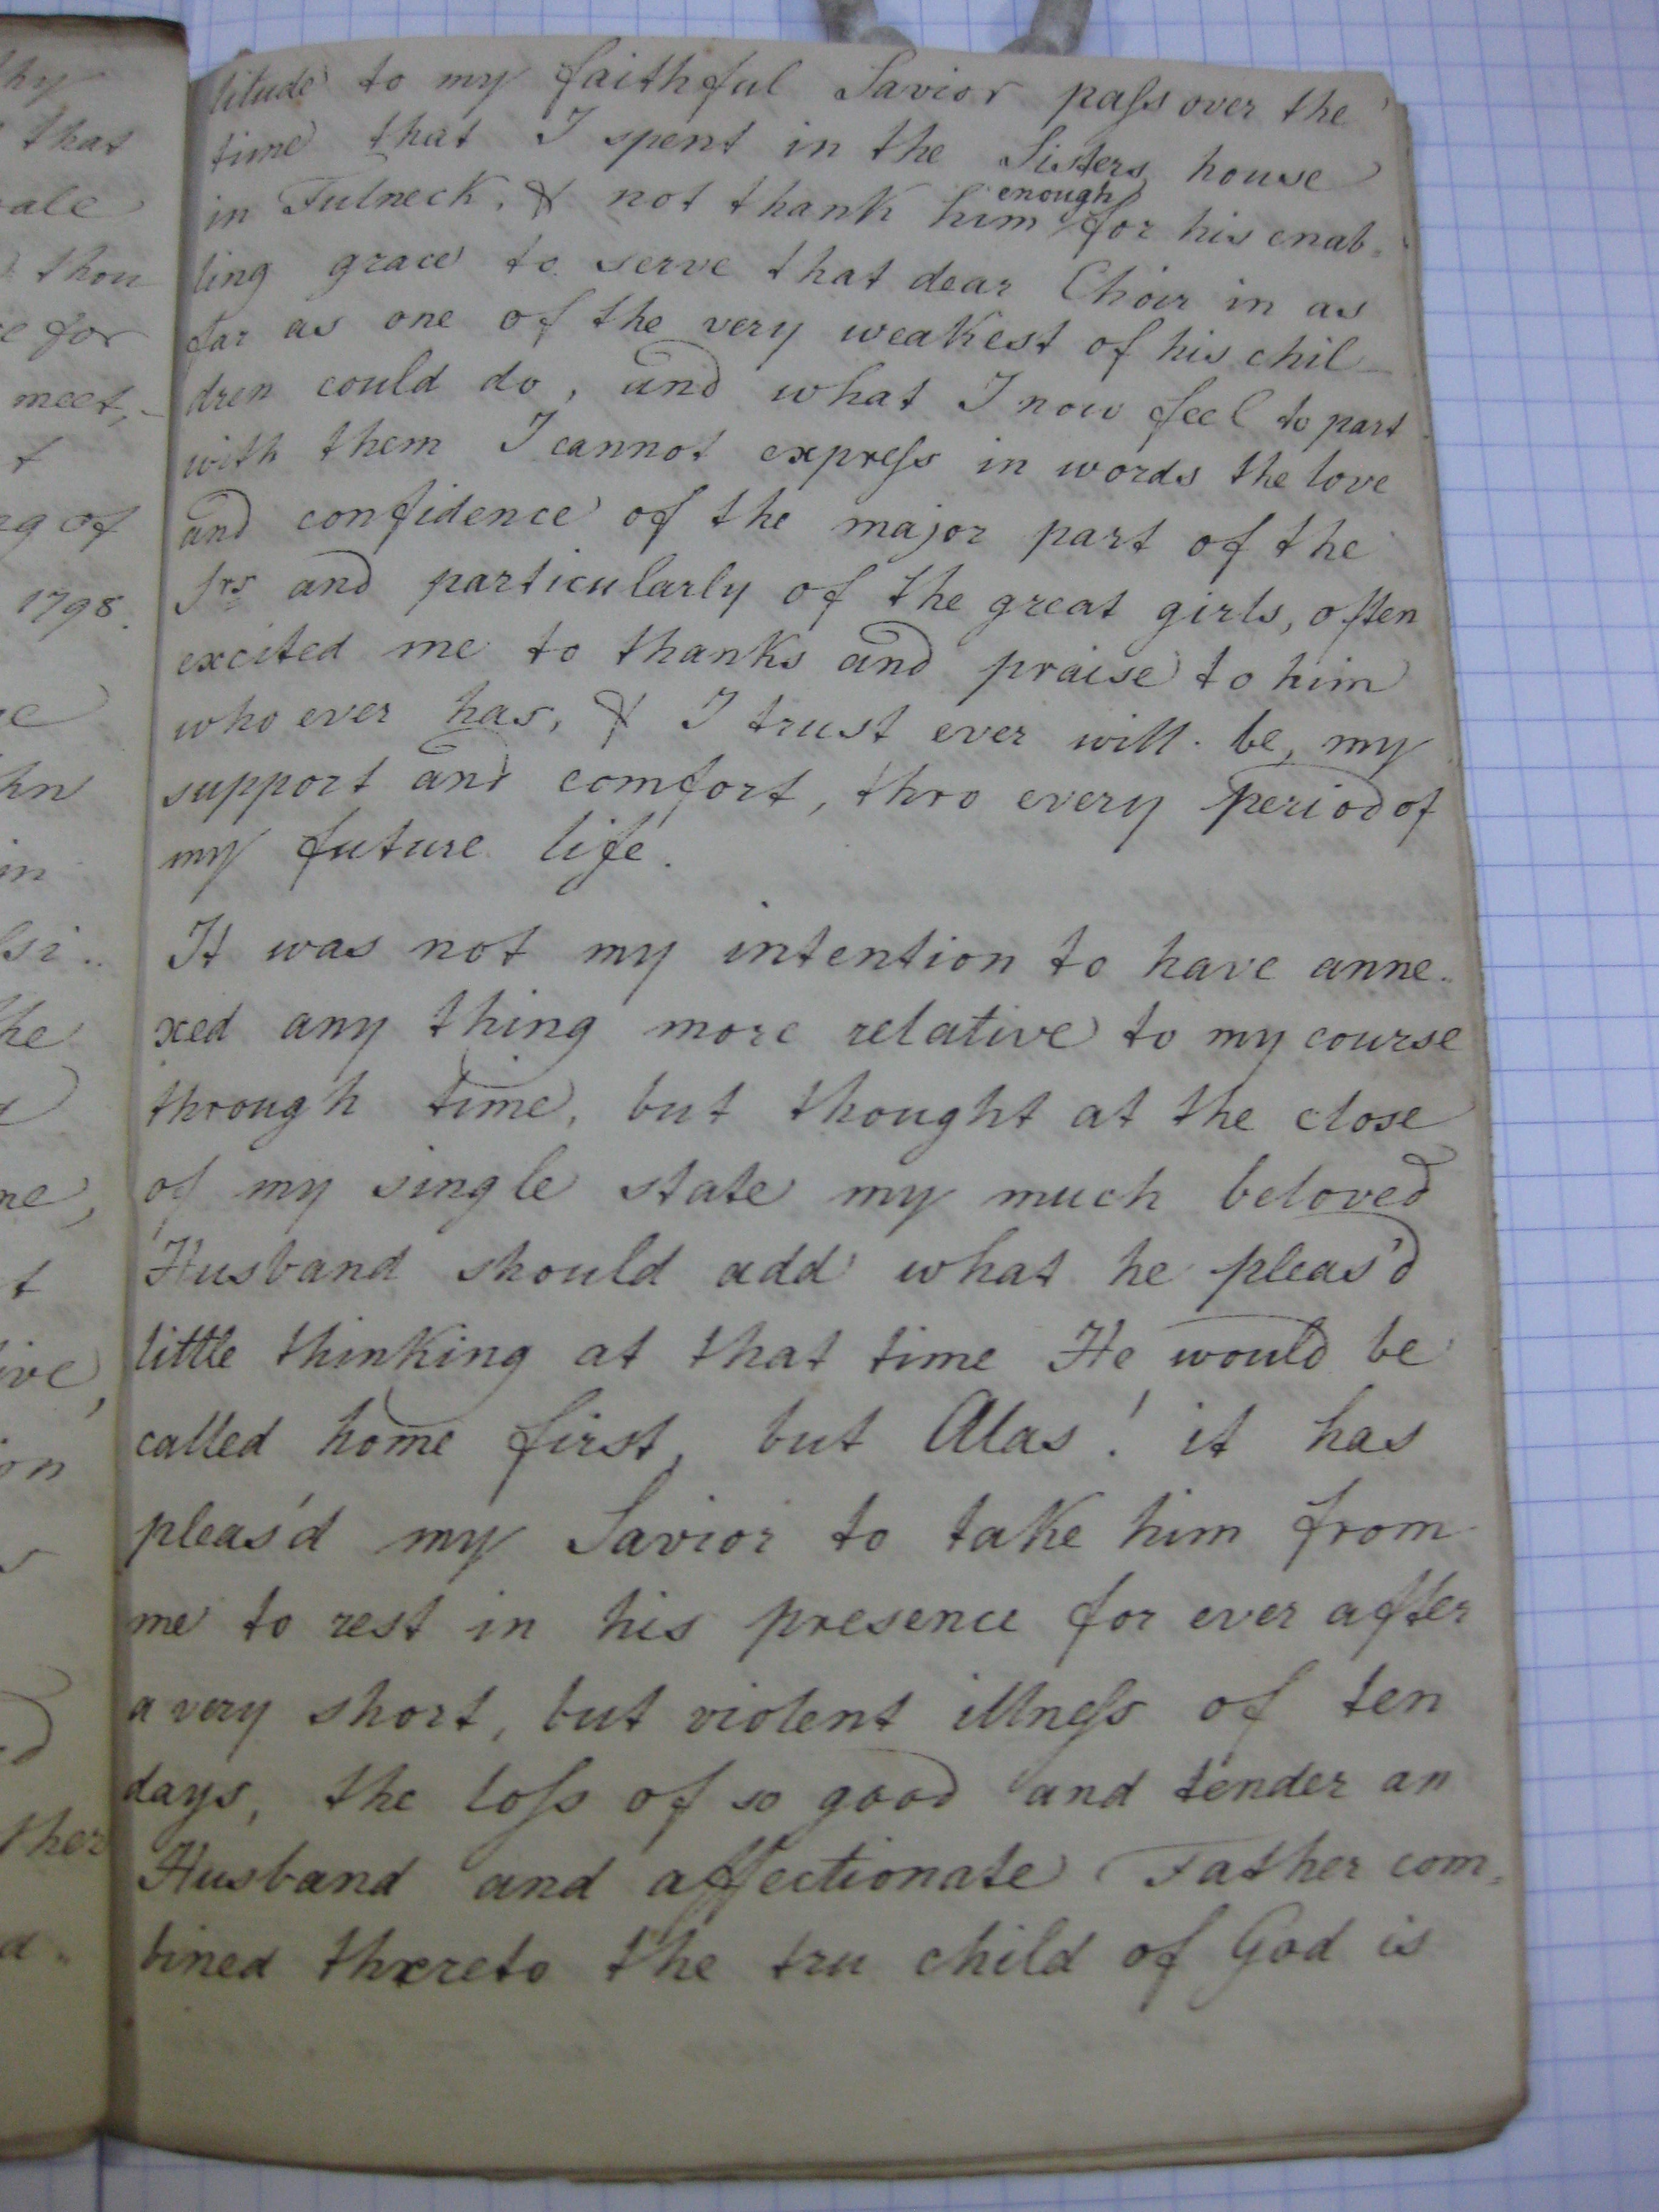 hy
that
ale
thou
e for
meet,-
t
ng of
1798.
hn
in
si..
he
ne,
t
ive,
on
ther
titude to my faithful Savior paſs over the
time that I spent in the Sisters house
in Fulneck, & not thank him enough for his enab-
ling grace to serve that dear Choir in as
far as one of the very weakest of his chil-
dren could do, and what I now feel to part
with them I cannot expreſs in words the love
and confidence of the major part of the
Srs and particularly of the great girls, often
excited me to thanks and praise to him
who ever has, & I trust ever will be, my
support and comfort, thro every period of
my future life.
It was not my intention to have anne-
xed any thing more relative to my course
through time, but thought at the close
of my single state my much beloved
Husband should add what he pleas'd
little thinking at that time He would be
called home first, but Alas! it has
pleas'd my Savior to take him from
me to rest in his presence for ever after
a very short, but violent illneſs of ten
days, the loſs of so good and tender an
Husband and affectionate Father com-
bined thereto the tru child of God is